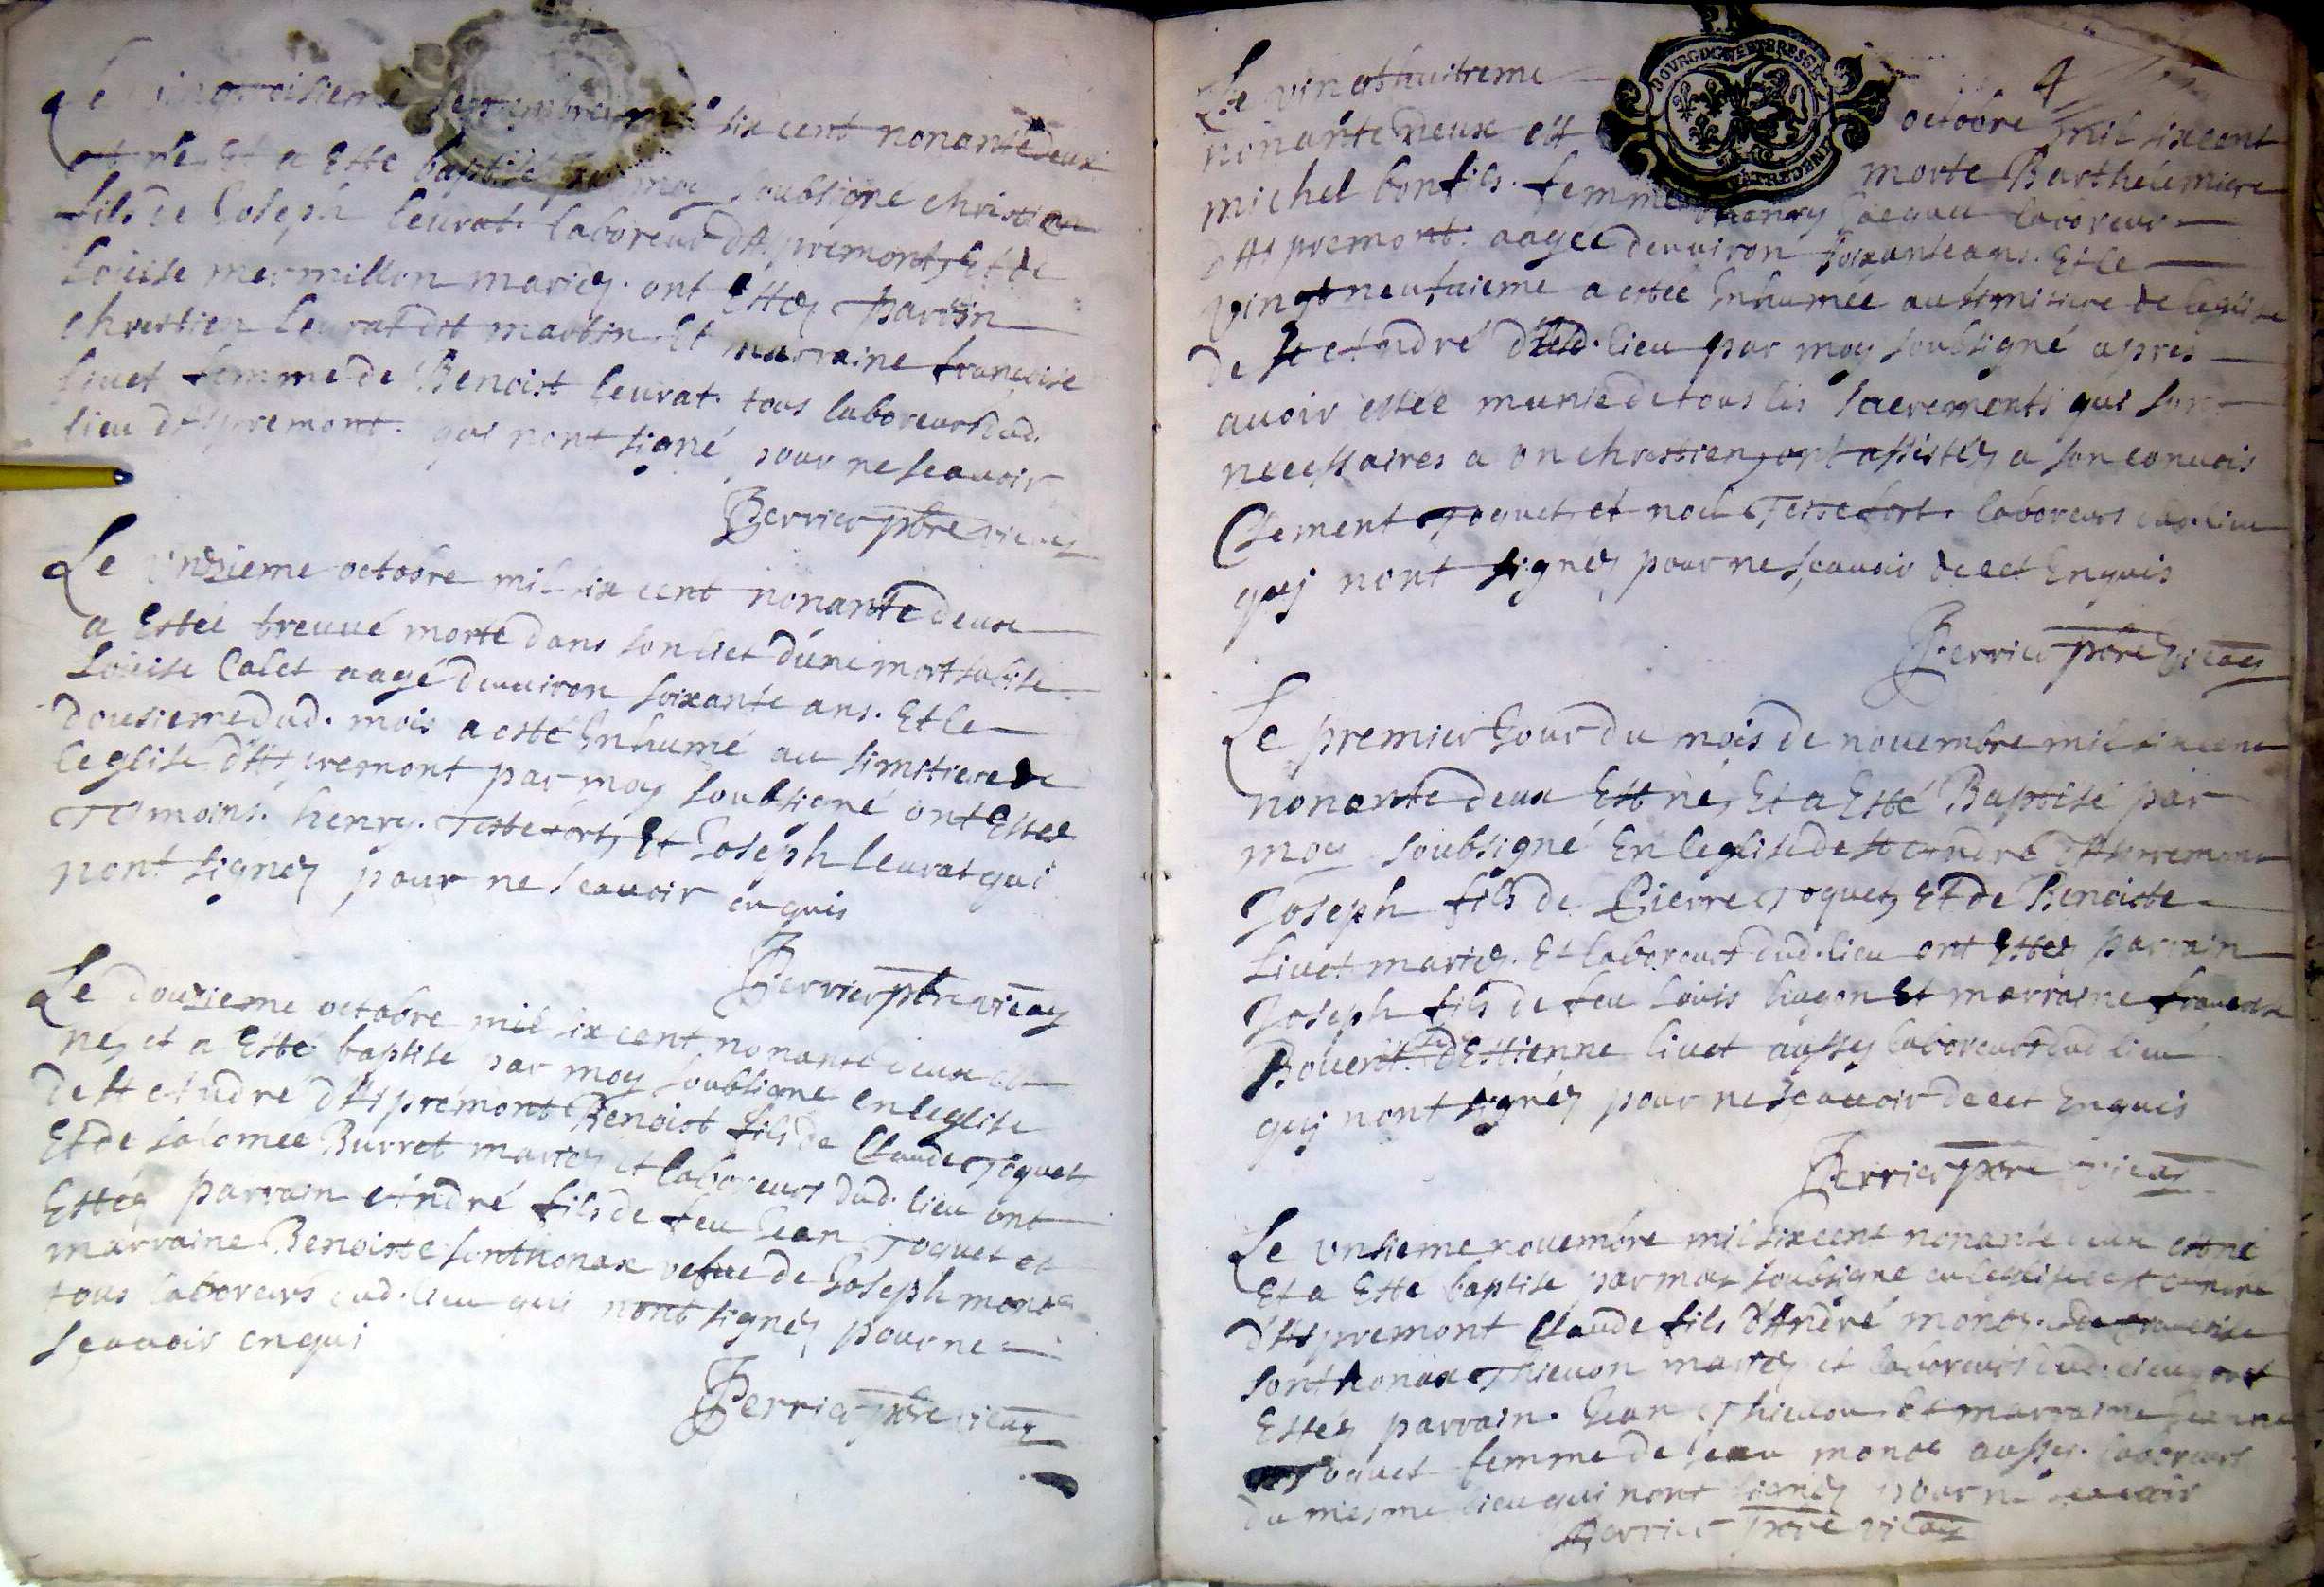 Le septembre mil six cent nonante deux
est né Et a Esté baptisé par moy soubsigné christian
fils de Joseph leurat laboreur d'Aspremont, Et de
Louise mermillon mariez. ont Ettez parrin
chrestien leurat dit martin Et marraine francoise
livet femme de Benoist leurat. tous laboreurs dud.
lieu d'Aspremont. qui nont signé pour ne scavoir
Perrier pbre vicay
Le vnzieme octobre mil six cent nonante deux
a Estée treuué morte dans son lict d'une mort subite
Louise Calet aagé denuiron soixante ans. Et le
dousieme dud. mois a esté Inhumé au simitiere de
leglise d'Aspremont par moy soubsigné ont Estee
Tesmoins. henry. Testefort, Et Joseph leurat qui
nont signez pour ne scauoir enquis
Perrier pbre vicay
Le douzieme octobre mil six cent nonante deux est
nez et a Esté baptise par moy soubsigne en leglise
de st Andre d'Aspremont Benoist fils de Claude Joquet
Et de salomee Burret mariez et laboreurs dud. lieu ont
Estéz parrain André fils de feu Jean Joquet et
marraine Benoiste sonthonax vefue de Joseph
tous laboreurs dud. lieu qui nont signez pour ne
scauoir enqui
Perrier pbre vicay
4
BOVRGOGNE ET BRESSE
Le vingthuitieme octobre mil six cent
nonante deux est morte Barthelemiere
michel bonfils. femme henry Jacquet laboreur
d'Aspremont. aagee denuiron soixante ans. Et le
vingt neufuieme a estée Inhumée au simitiere de leglise
de st André dud. lieu par moy soubsigné apres
auoir estée munie de tous les sacrements qui sont
necessaires a vn chrestien, ont assistéz a son conuois
Clement Joquet, et noel Testefort. laboreurs dud. lieu
quj nont signéz pour ne scauoir de cet Enquis
Perrier pbre vicay
Le premier Jour du mois de nouembre mil six cent
nonante deux Est né, Et a Esté Baptisé par
moy soubsigné En leglise de st Andre d'Aspremont
Joseph fils de Pierre Joquet, Et de Benoiste
Liuet mariez. Et laboreurs dud. lieu ont Estez parrain
Joseph fils de feu Louis hugon Et marraine francoise
d'Estienne liuet aussy laboreurs dud lieu
quj nont signéz pour ne scauoir de cet Enquis
Perrier pbre vicay
Le vnsieme nouembre mil six cent nonante deux est né
Et a Esté baptise par moy soubsigne en leglise de st Andre
d'Aspremont Claude fils d'André de francoise
sonthonax Thieuon mariez et laboreurs dud. lieu, ont
Estéz parrain. Jean Thieuon Et marraine Jeanne
Joquet femme de Jean aussy. laboreurs
du mesme lieu qui nont signéz pour ne scauoir
Perrier pbre vicay